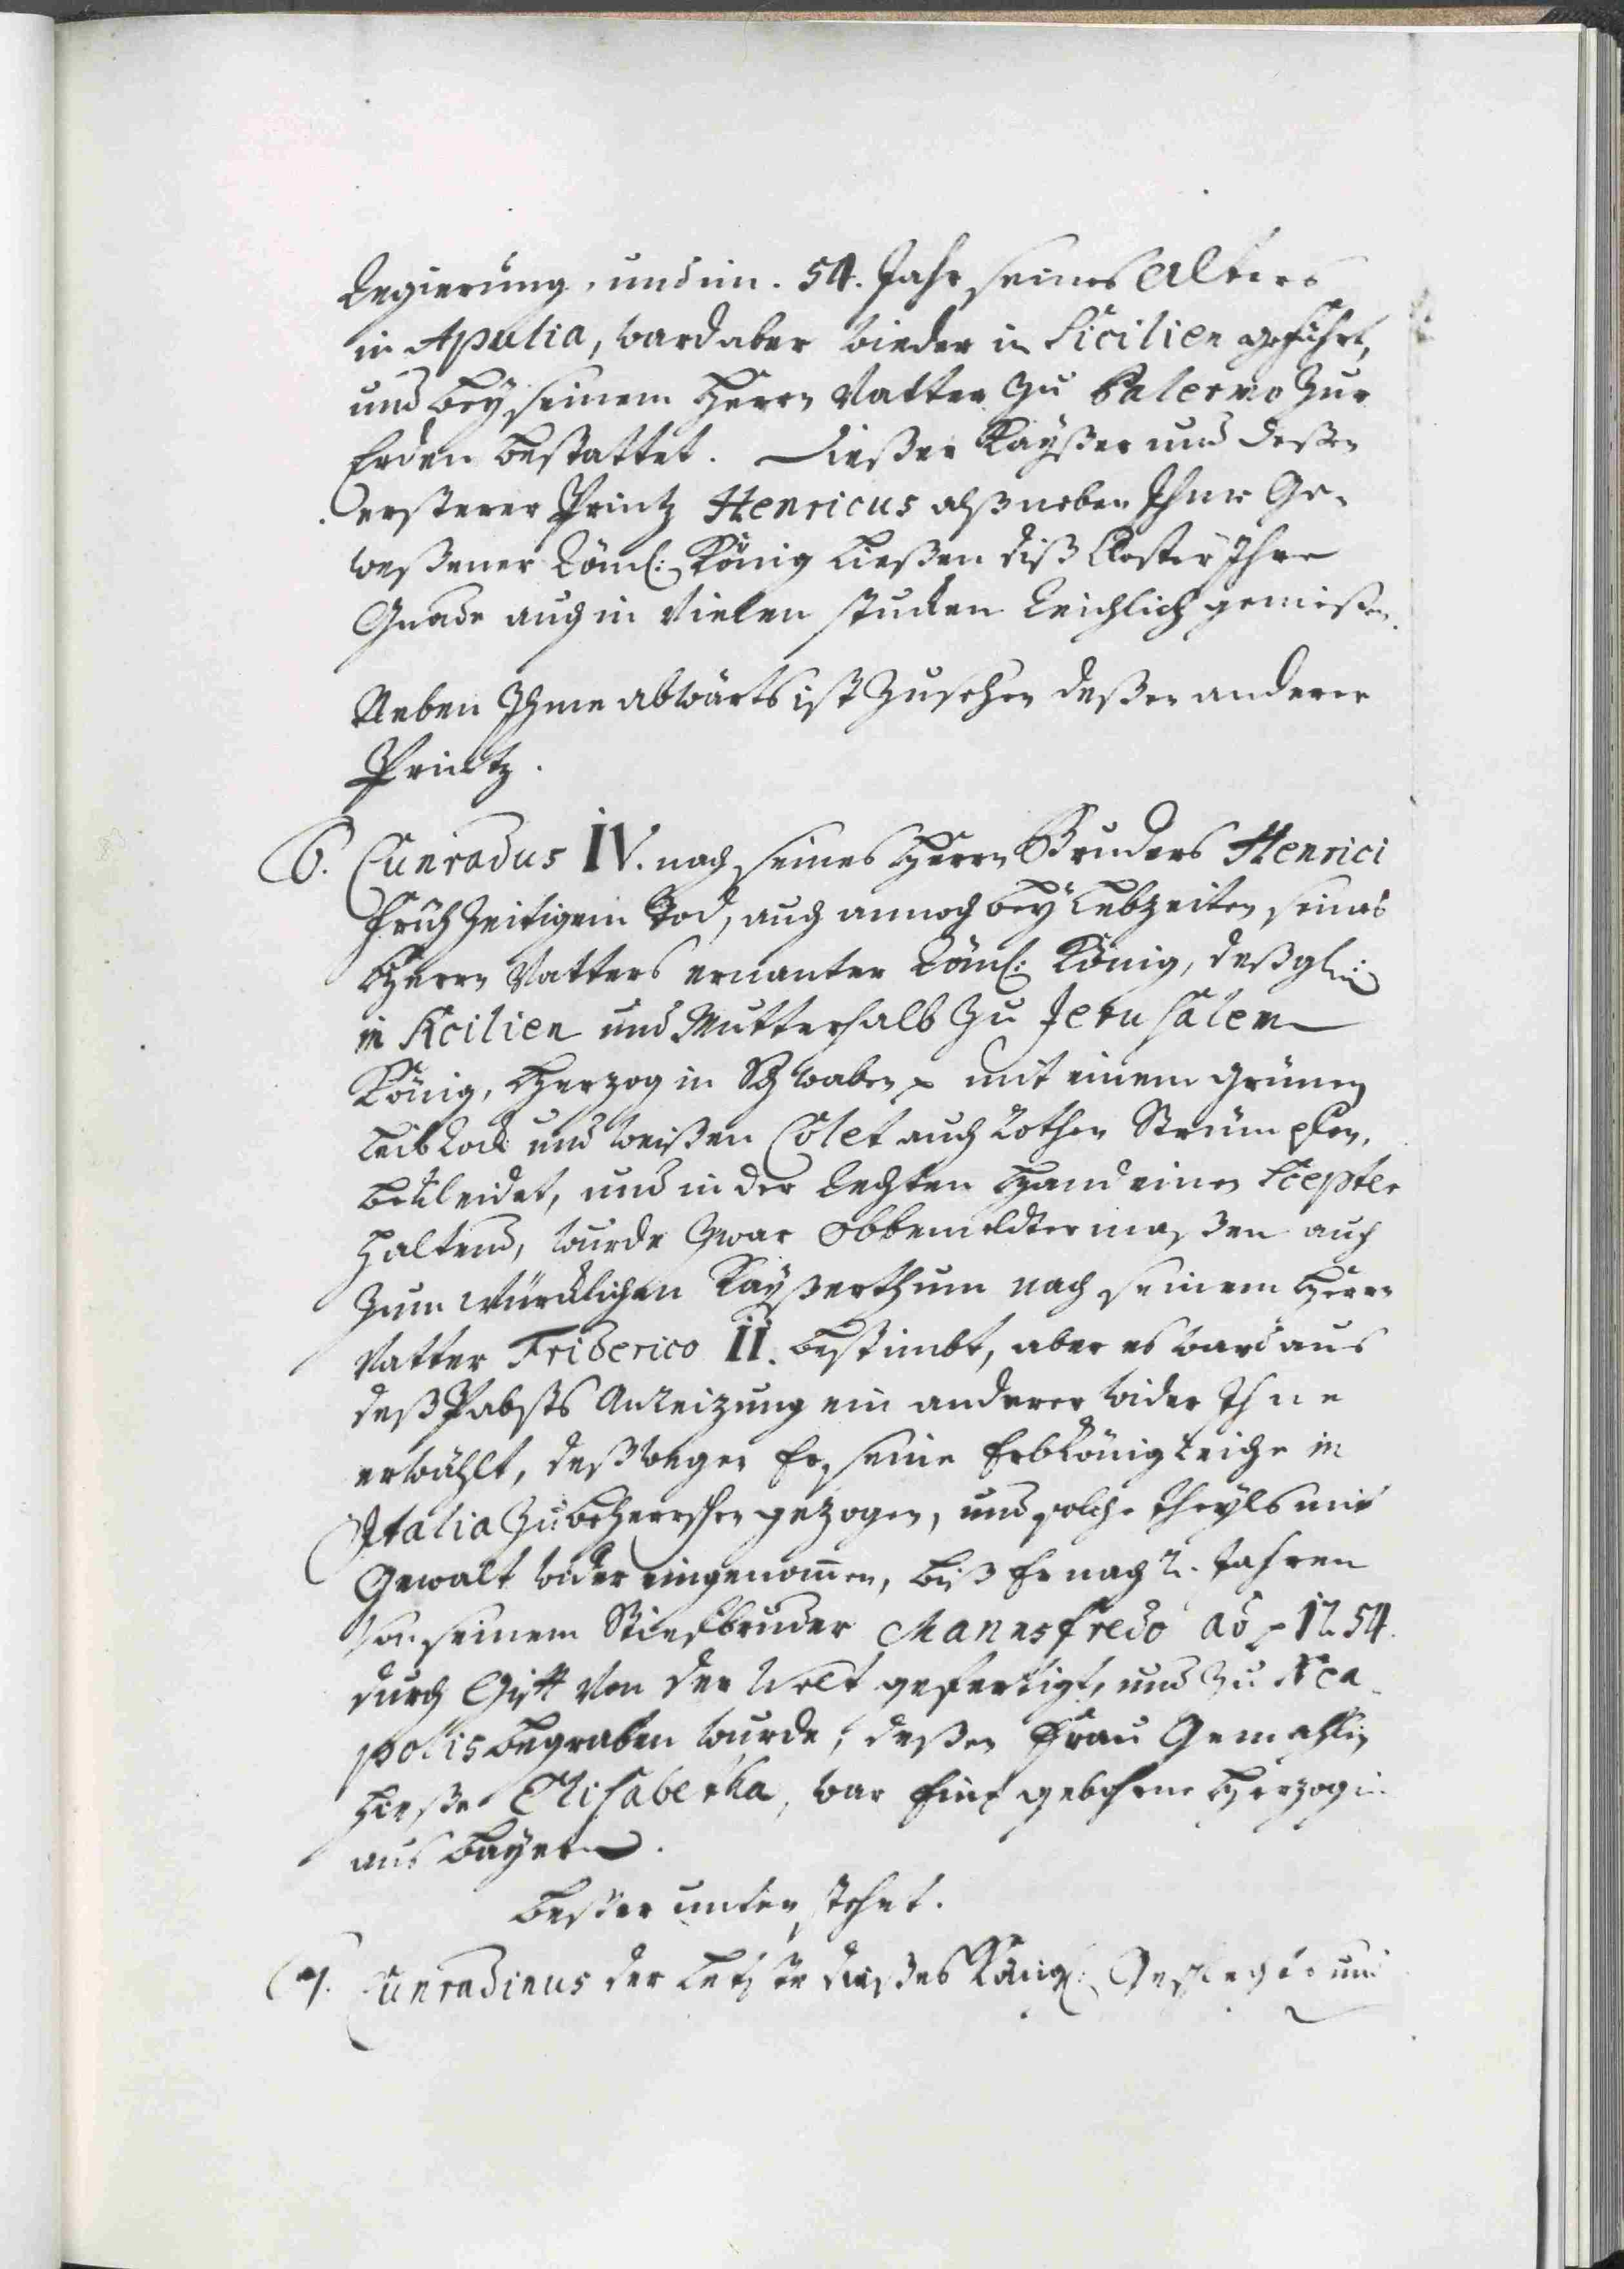 Regierung, und im. 54. Jahr seines Alters
in Apulia, ward aber wieder in Sicilien geführt,
und bey seinem Herrn Vatter zu Palermo zur
Erden bestattet. Dießer Kayßer und deßen
ersterer Printz Henricus alß neben Ihme Ge-
weßener Röml: König ließen diß Closter Ihre
Gnade auch in Vielen stucken Reichlich genießen.
Neben Ihme abwärts ist zusehen deßen anderer
Printz.
6. Cunradus IV. nach seines Herrn Bruders Henrici
frühzeitigem Tod, auch annoch bey Lebzeiten seines
Herrn Vatters ernanter Röml: König, deßglei:
in Sicilien und Mutterhalb zu Jerusalem
König, Herzog in Schwaben p mit einem grünen
Leib Rock und weißen Colet auch Rothen Strümpfen,
bekleidet, und in der Rechten Hand einen Scepter
haltend, wurde zwar obbemeldter maßen auch
zum würcklichen Kayßerthum nach seinem Herrn
Vatter Friderico II. bestimbt, aber es ward aus
deß Pabsts Anreizung ein anderer wider Ihne
erwählt, deßwegen Er seine Erb Königreiche in
Italia zu beherrschen gezogen, und solche theyls mit
Gewalt wider eingenom̄en, biß Er nach 2. Jahren
von seinem Stiefbruder Mannsfredo aō p 1254.
durch Gifft von der Welt gefertigt, und zu Nea-
polis begraben wurde, deßen Frau Gemahlin
hieße Elisabetha, war Eine gebohrne Herzogin
aus Bayern.
Beßer unten stehet.
7. Cunradinus der Letzte dießes Königl: Geschlechts und